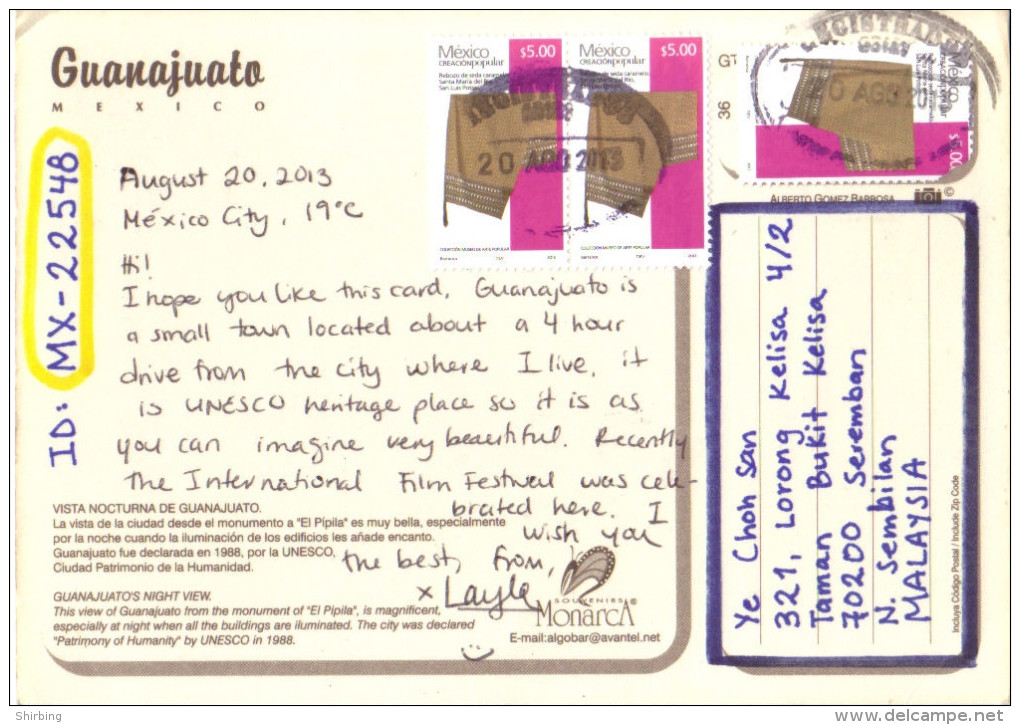 Guanajuato
MEXICO
ID: MX-22548
August 20, 2013
México City, 19°C
Hi!
I hope you like this card. Guanajuato is
a small town located about a 4 hour
drive from the city where I live, it
is UNESCO heritage place so it is as
you can imagine very beautiful. Recently
the International Film Festival was cele-
brated here. I
wish you
the best, from,
x Layla
VISTA NOCTURNA DE GUANAJUATO.
La vista de la ciudad desde el monumento a "El Pípila" es muy bella, especialmente
por la noche cuando la iluminación de los edificios les añade encanto.
Guanajuato fue declarada en 1988, por la UNESCO,
Ciudad Patrimonio de la Humanidad.
GUANAJUATO'S NIGHT VIEW.
This view of Guanajuato from the monument of "El Pipila", is magnificent,
especially at night when all the buildings are iluminated. The city was declared
"Patrimony of Humanity" by UNESCO in 1988.
SOUVENIRS
MonarcA
E-mail:algobar@avantel.net
México $5.00
CREACIÓN popular
Rebozo de seda caramelo
Santa María del Río,
San Luis Potosí
México $5.00
CREACIÓN popular
Rebozo de seda caramelo
Santa María del Río,
20 AGO 2013
GT
36
México
$5.00
20 AGO 20
ALBERTO GOMEZ BARBOSA ©
Ye Choh San
321, Lorong Kelisa 4/2
Taman Bukit Kelisa
70200 Seremban
N. Sembilan
MALAYSIA
Incluya Código Postal / Include Zip Code
Shirbing
delcampe.net